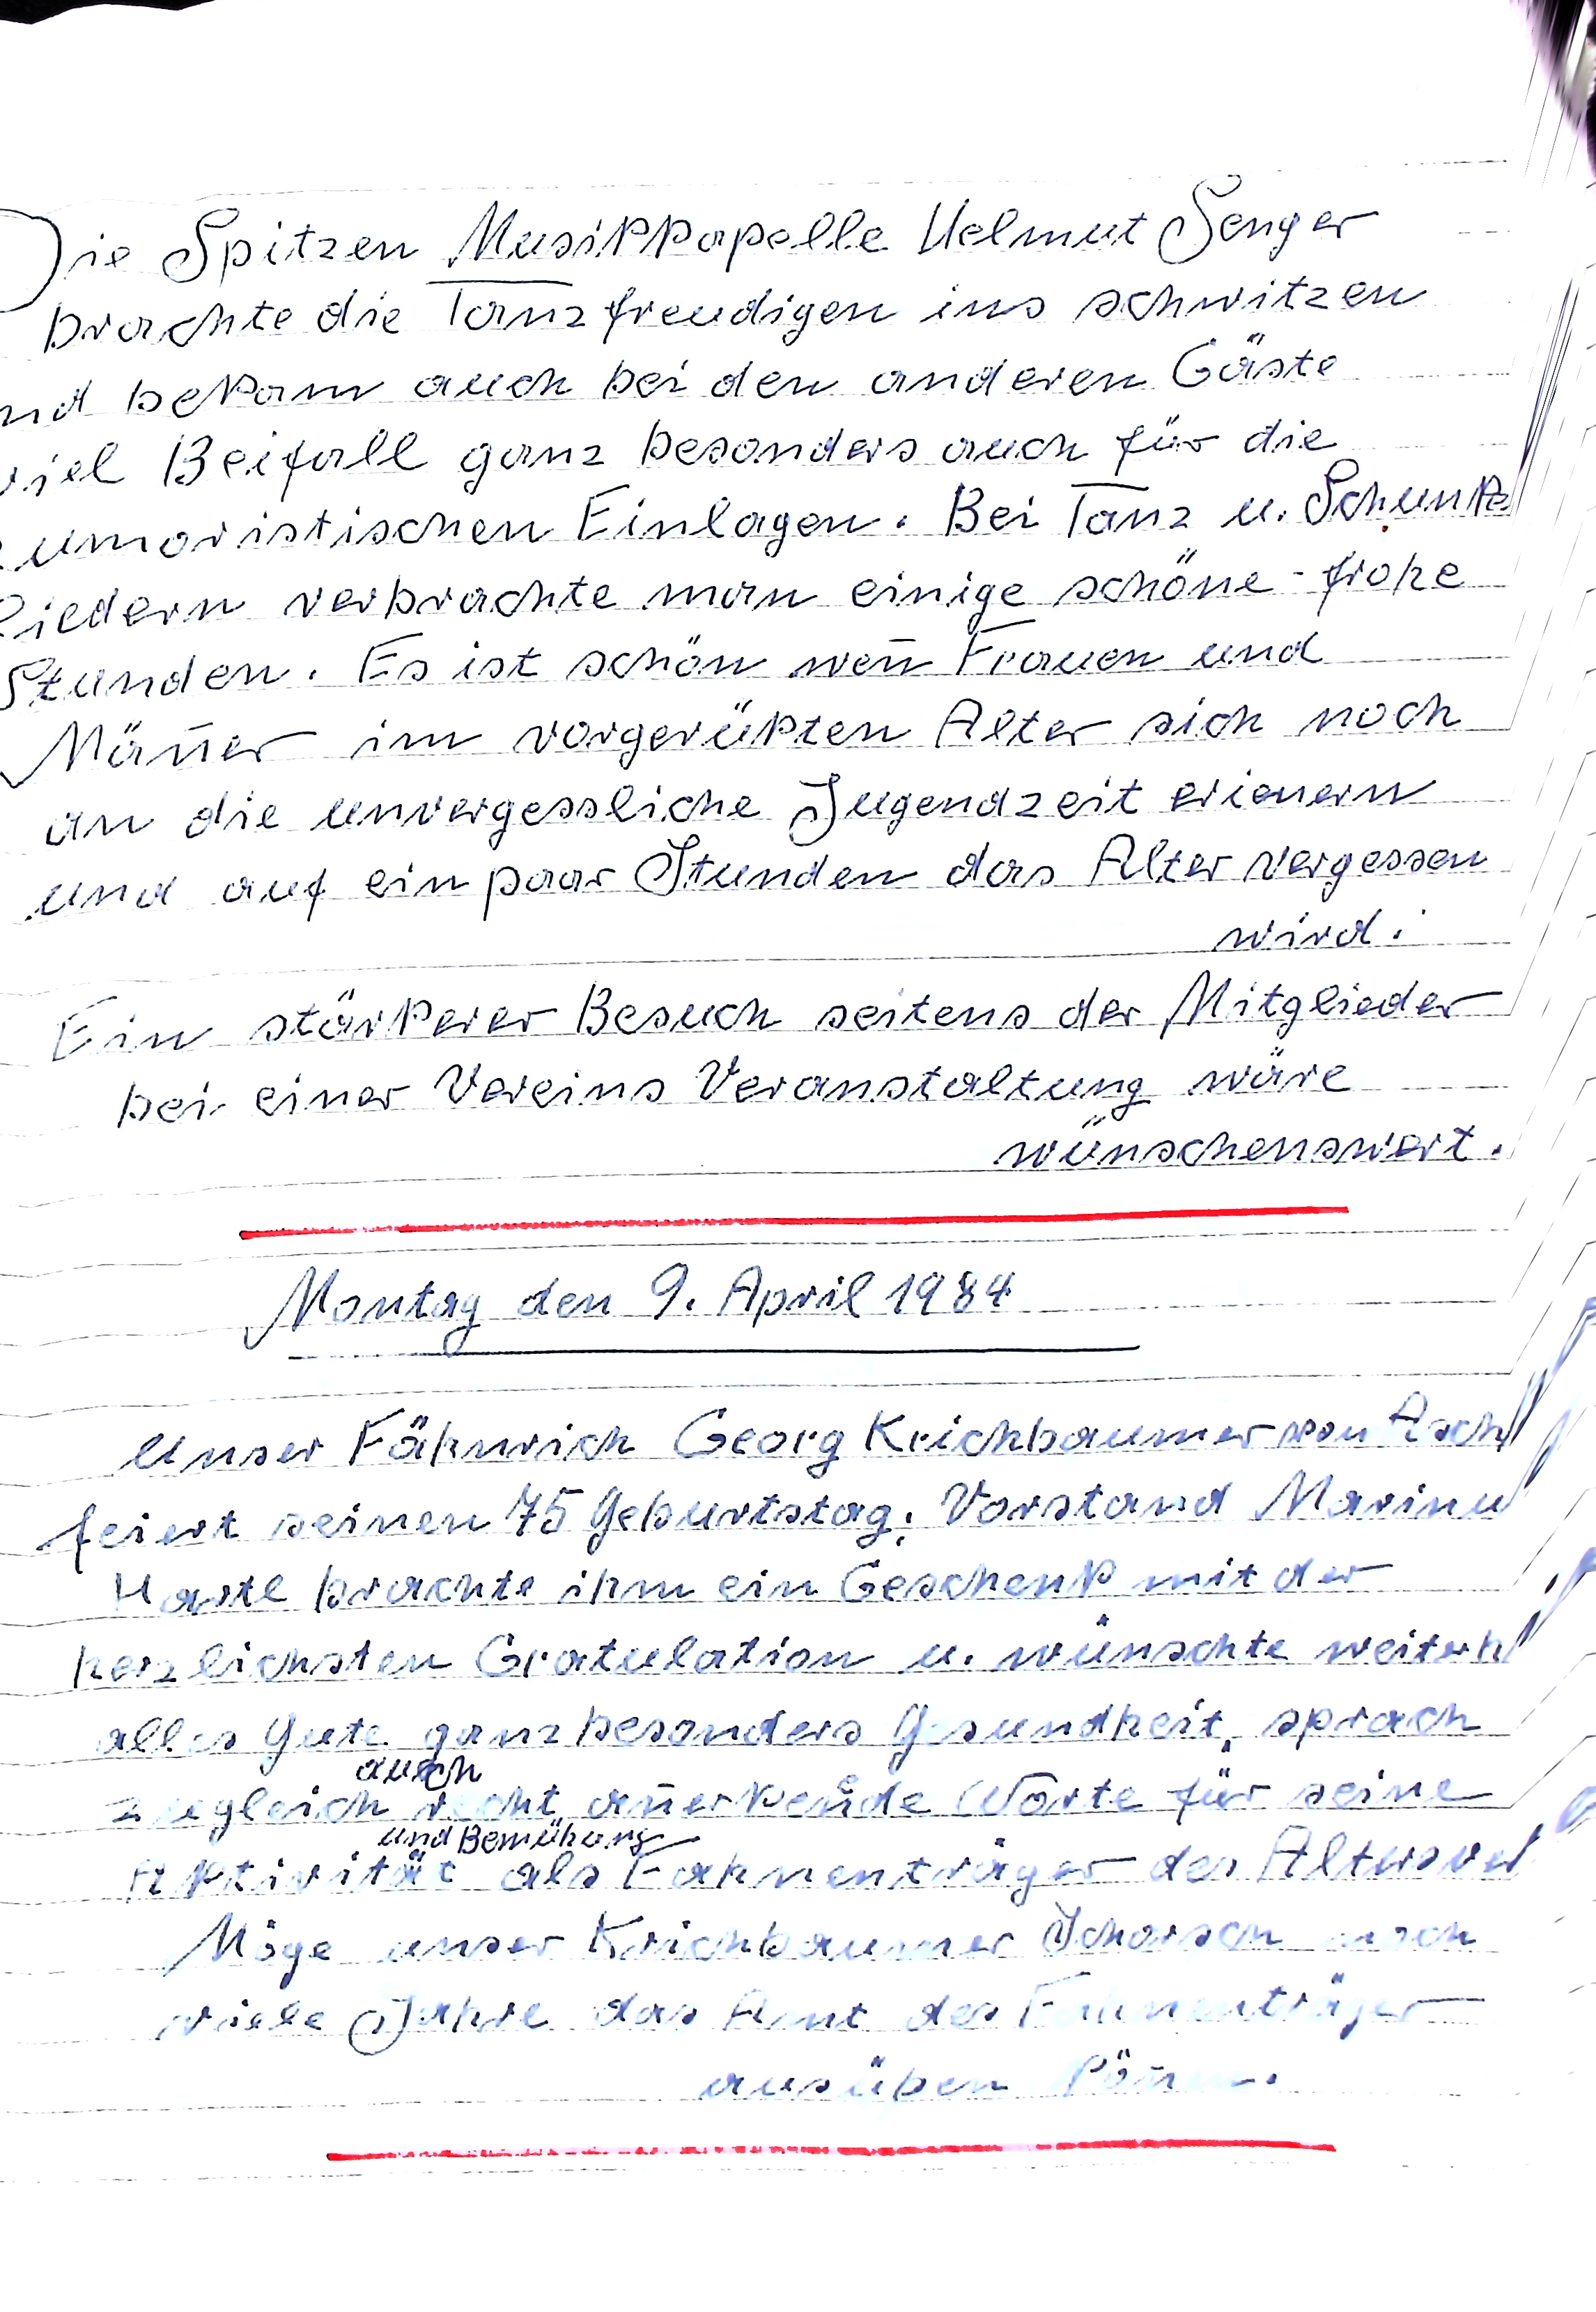 Die Spitzen Musikkapelle Helmut Senger
brachte die Tanzfreudigen ins schwitzen
nd bekam auch bei den anderen Gäste
viel Beifall ganz besonders auch für die
umoristischen Einlagen. Bei Tanz u. Schunke
liedern verbrachte man einige schöne-frohe
Stunden. Es ist schön weñ Frauen und
Mäñer im vorgerükten Alter sich noch
an die unvergessliche Jugendzeit erienern
und auf ein paar Stunden das Alter vergessen
wird.
Ein stärkerer Besuch seitens der Mitglieder
bei einer Vereins Veranstaltung wäre
wünschenswert.
Montag den 9. April 1984
Unser Fähnrich Georg Krichbaumer von Asch
feiert seinen 75 Geburtstag. Vorstand Marinu
Hartl brachte ihm ein Geschenk mit der
herzlichsten Gratulation u. wünschte weiterh
alles Gute ganz besonders Gesundheit, sprach
auch
zugleich recht añerkeñde Worte für seine
und Bemühung
Aktivität als Fahnenträger des Altersver
Möge unser Krichbaumer Schorsch noch
viele Jahre das Amt des Fahnenträger
ausüben köñen.